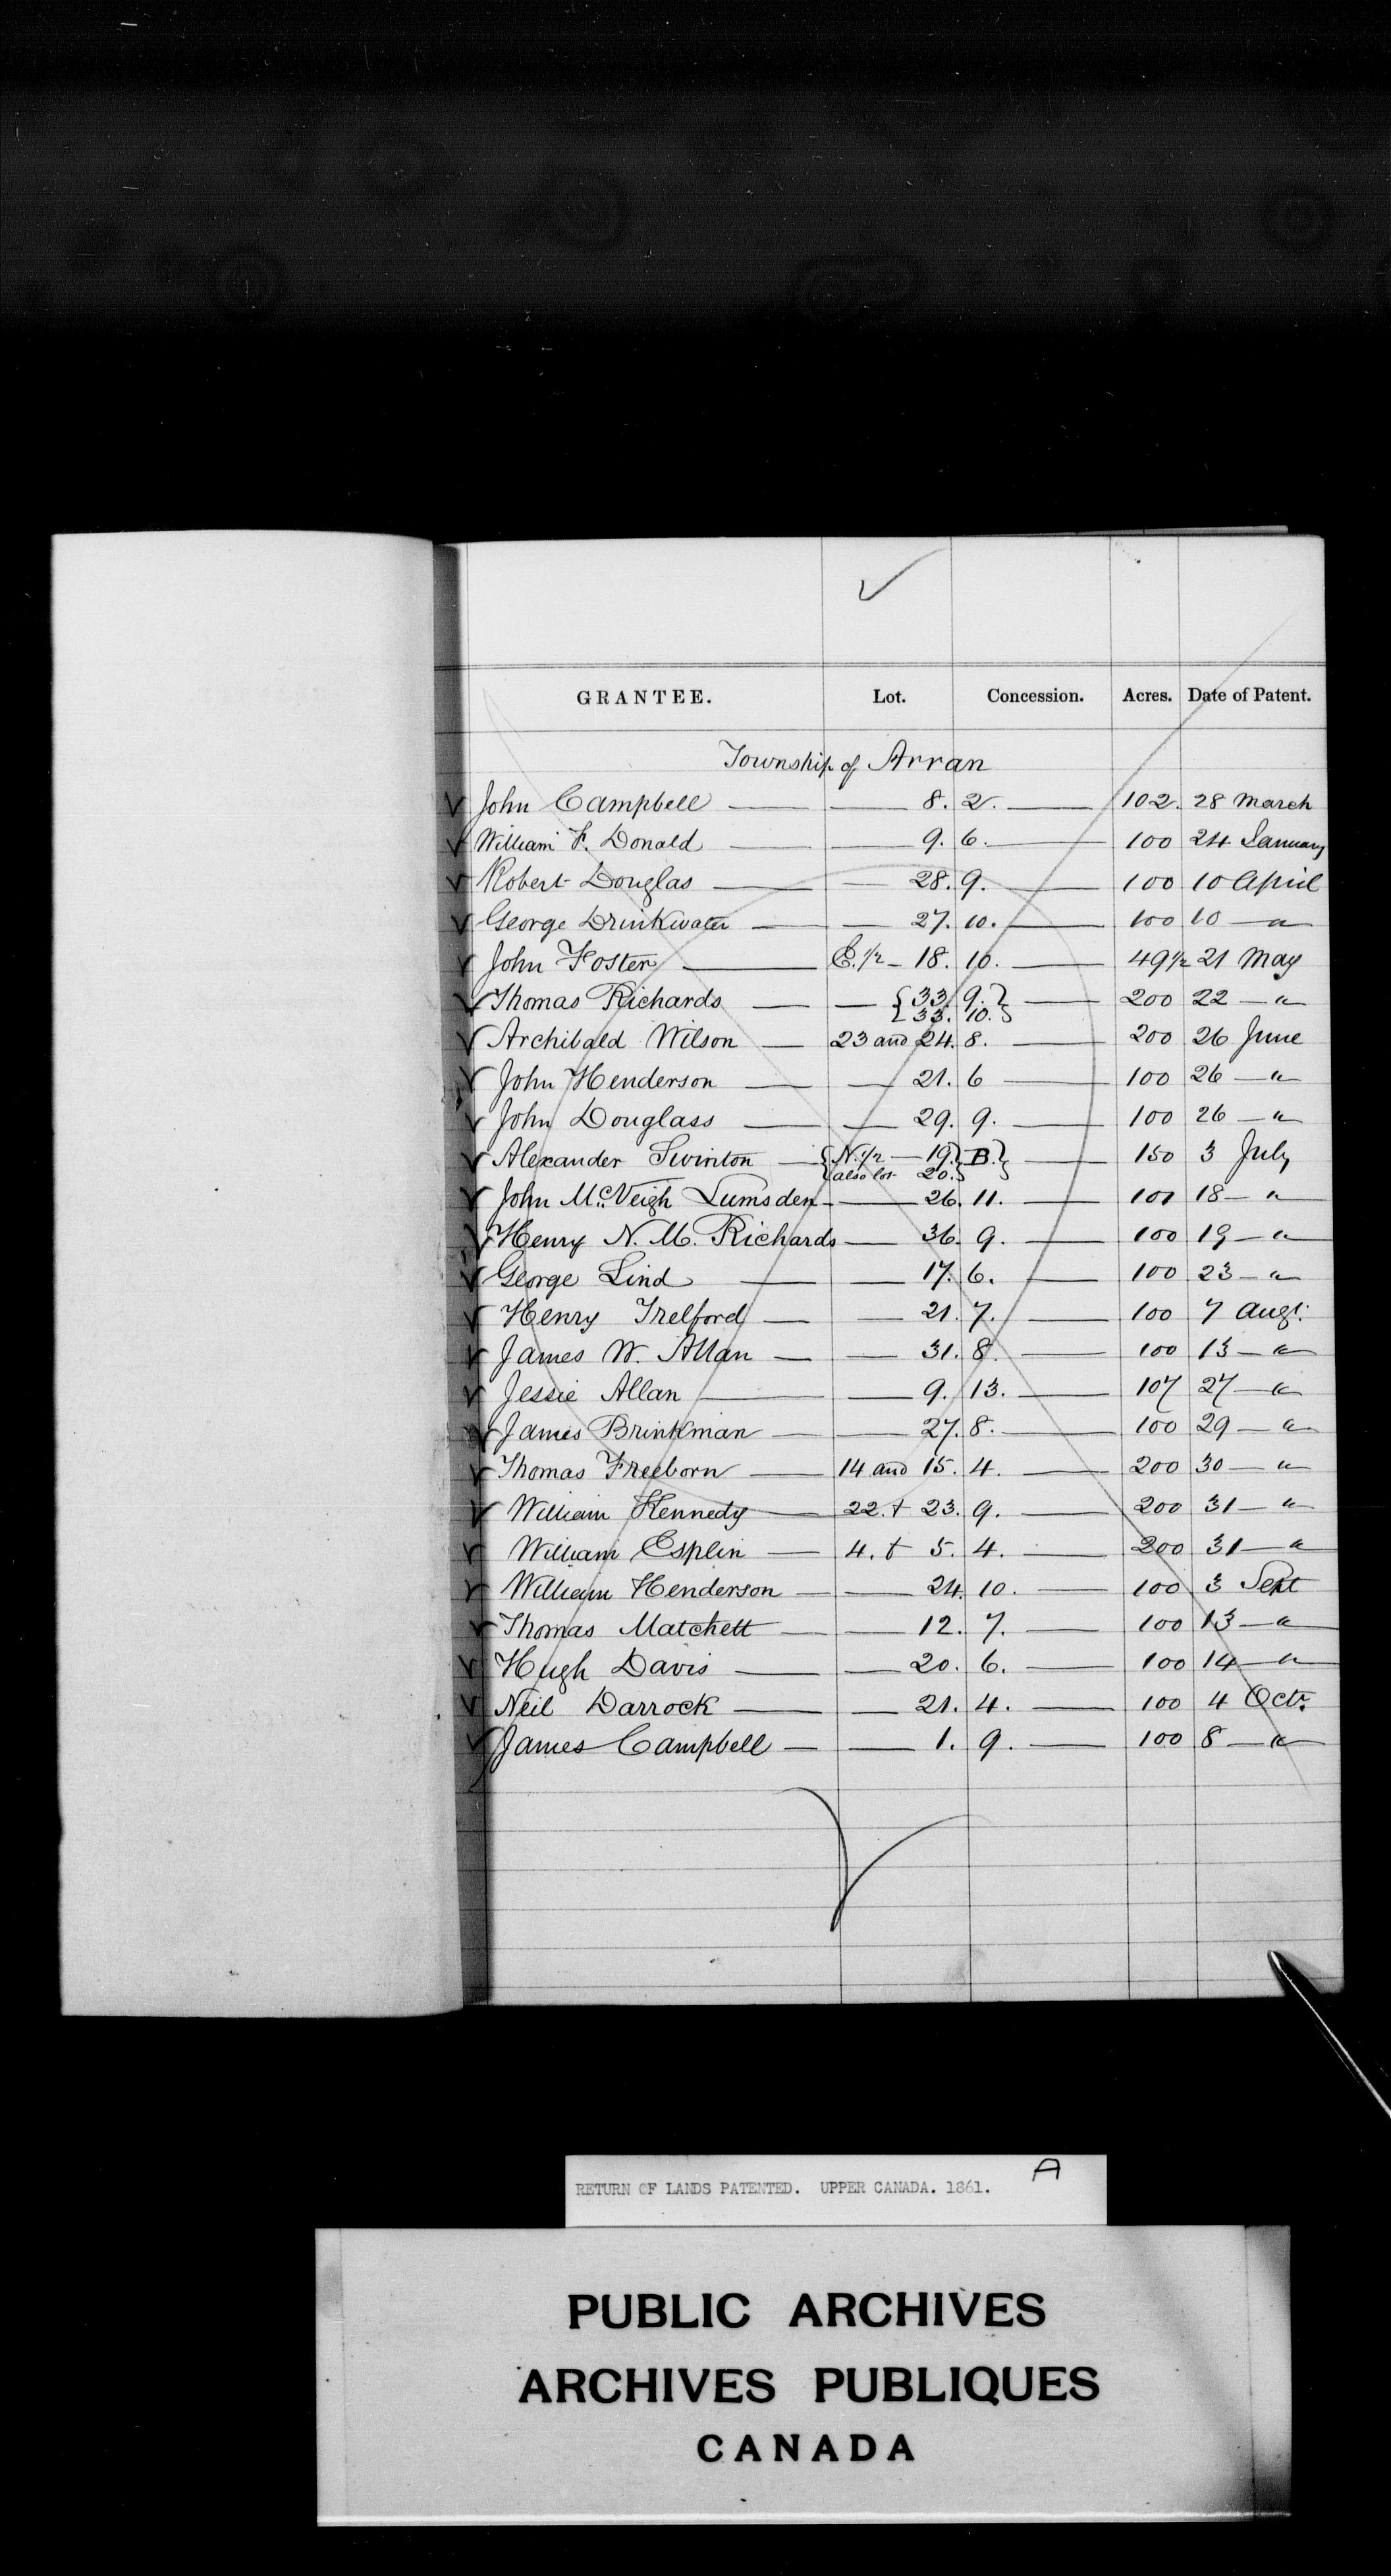 GRANTEE. Lot. Concession. Acres. Date of Patent.
Township of Arran
John Campbell — — 8. 2. — 102. 28 March
William F. Donald — — 9. 6. — 100 24 January
Robert Douglas — — 28. 9. — 100 10 April
George Drinkwater — — 27. 10. — 100 10 — "
John Foster — E. 1/2 — 18. 10. — 49 1/2 21 May
Thomas Richards — — { 33. 9. } — 200 22 — "
{ 33. 10. }
Archibald Wilson — 23 and 24. 8. — 200 26 June
John Henderson — — 21. 6 — 100 26 — "
John Douglass — — 29. 9. — 100 26 — "
Alexander Swinton — { N. 1/2 — 19. } B. } — 150 3 July
{ also lot 20. }
John McVeigh Lumsden — — 26. 11. — 101 18 — "
Henry N. M. Richards — 36. 9. — 100 19 — "
George Lind — — 17. 6. — 100 23 — "
Henry Trelford — — 21. 7. — 100 7 Augt.
James W. Allan — — 31. 8. — 100 13 — "
Jessie Allan — — 9. 13. — 107 27 — "
James Brinkman — — 27. 8. — 100 29 — "
Thomas Freeborn — 14 and 15. 4. — 200 30 — "
William Kennedy — 22. + 23. 9. — 200 31 — "
William Esplin — 4. + 5. 4. — 200 31 — "
William Henderson — — 24. 10. — 100 3 Sept
Thomas Matchett — — 12. 7. — 100 13 — "
Hugh Davis — — 20. 6. — 100 14 — "
Neil Darrock — — 21. 4. — 100 4 Octr.
James Campbell — — 1. 9. — 100 8 — "
A
RETURN OF LANDS PATENTED. UPPER CANADA. 1861.
PUBLIC ARCHIVES
ARCHIVES PUBLIQUES
CANADA